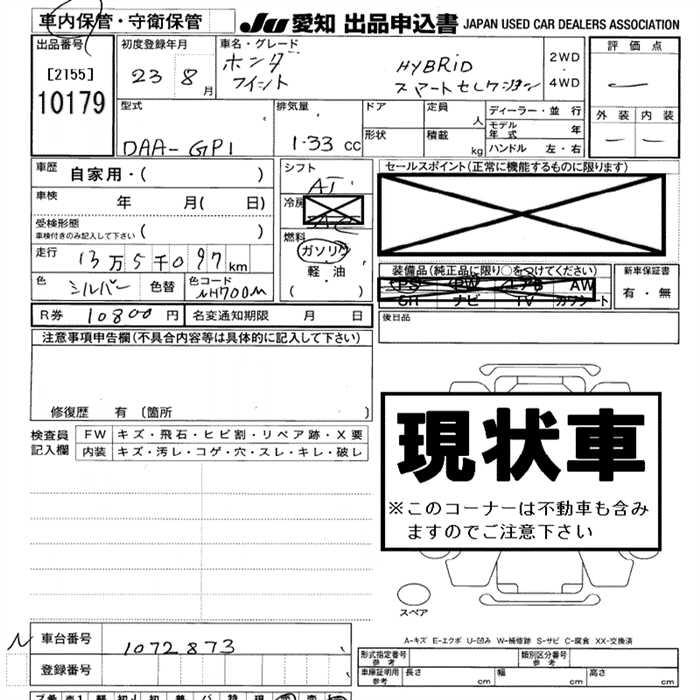 車内保管・守衛保管 JU 愛知 出品申込書 JAPAN USED CAR DEALERS ASSOCIATION
出品番号 初度登録年月 車名・グレード 評価点
[2155] 23 8月 ホンダ HYBRiD 2WD
10179 フィット スマートセレクション 4WD
外装 内装
型式 排気量 ドア 定員 人 ディーラー・並行
モデル年式 年
DAA-GP1 1.33 cc 形状 積載 kg ハンドル 左・右
車歴 自家用・( ) シフト AT セールスポイント(正常に機能するものに限ります)
車検 年 月( 日) 冷房
受検形態
車検付きのみ記入して下さい ( ) 燃料
走行 13万5千097km ガソリン 装備品(純正品に限り○をつけてください) 新車保証書
軽油 PS PW エアB AW 有・無
色 シルバー 色替 色コード NH700M ( ) SR ナビ TV カワシート
R券 10800円 名変通知期限 月 日 後日品
注意事項申告欄(不具合内容等は具体的に記入して下さい)
修復歴 有〔箇所 〕
検査員 FW キズ・飛石・ヒビ割・リペア跡・X要
記入欄 内装 キズ・汚レ・コゲ・穴・スレ・キレ・破レ
現状車
※このコーナーは不動車も含み
ますのでご注意下さい
スペア
A-キズ E-エクボ U-凹み W-補修跡 S-サビ C-腐食 XX-交換済
N 車台番号 1072873
登録番号
形式指定番号 参考 類別区分番号 参考
車庫証明用 参考 長さ cm 幅 cm 高さ cm